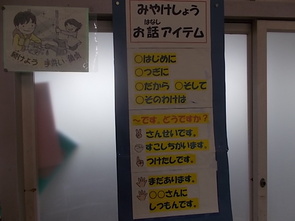 続けよう 手洗い
みやけしょう
お話アイテム
はなし
○はじめに
○つぎに
○だから ○そして
○そのわけは
～です。どうですか？
さんせいです。
すこしちがいます。
つけたしです。
まだあります。
○○さんに
しつもんです。